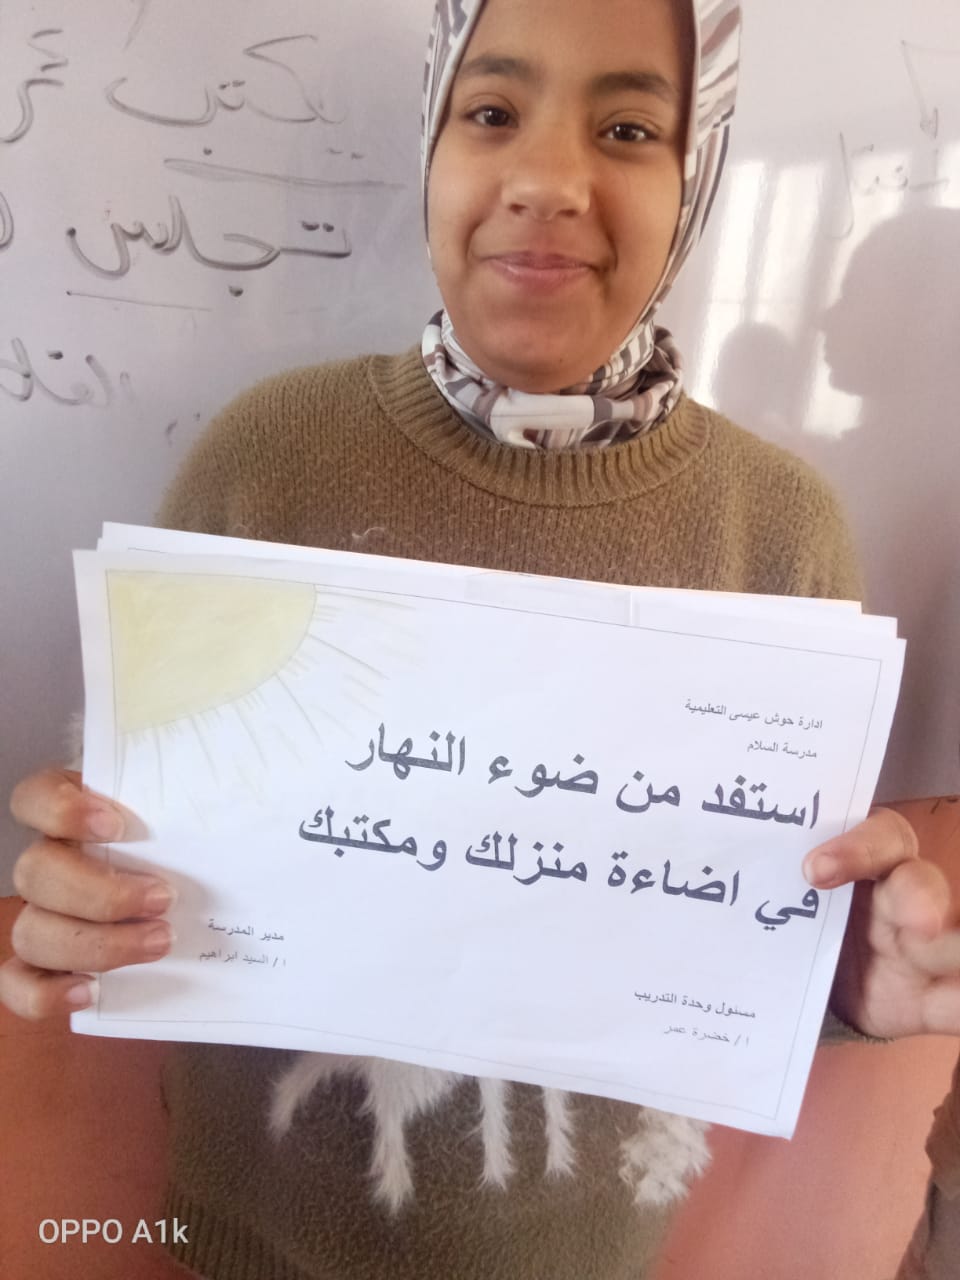 يكتب
تجلس
ادارة حوش عيسى التعليمية
مدرسة السلام
استفد من ضوء النهار
في اضاءة منزلك ومكتبك
مدير المدرسة
ا / السيد ابراهيم
مسئول وحدة التدريب
ا / خضرة عمر
OPPO A1k